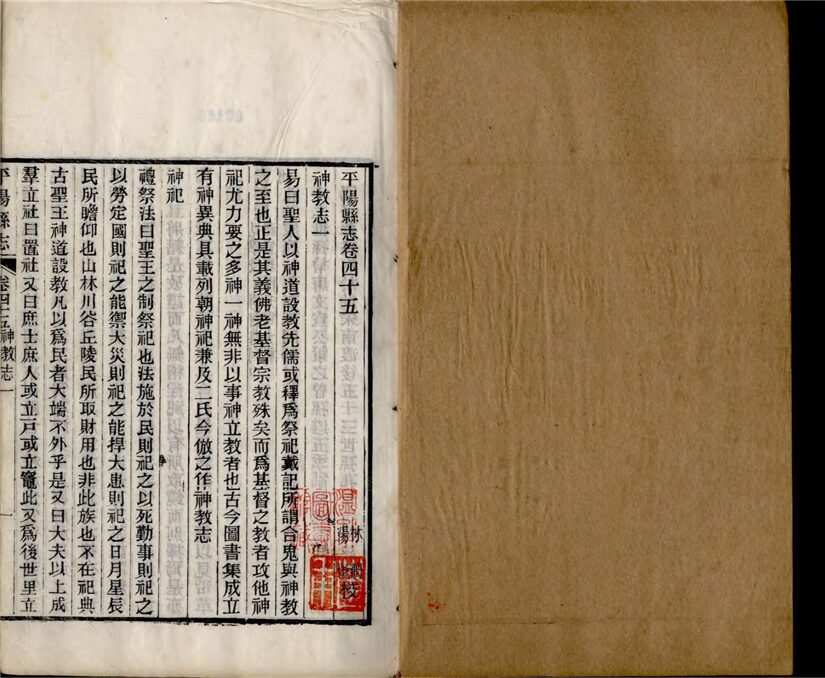 平陽縣志卷四十五
神教志一
易曰聖人以神道設教先儒或釋爲祭祀戴記所謂合鬼與神教
之至也正是其義佛老基督宗教殊矣而爲基督之教者攻他神
祀尤力要之多神一神無非以事神立教者也古今圖書集成立
有神異典具載列朝神祀兼及二氏今倣之作神教志
神祀
禮祭法曰聖王之制祭祀也法施於民則祀之以死勤事則祀之
以勞定國則祀之能禦大災則祀之能捍大患則祀之日月星辰
民所瞻仰也山林川谷丘陵民所取財用也非此族也不在祀典
古聖王神道設教凡以爲民者大端不外乎是又曰大夫以上成
羣立社曰置社又曰庶士庶人或立戸或立竈此又爲後世里立
平陽縣志
卷四十五神教志一
一